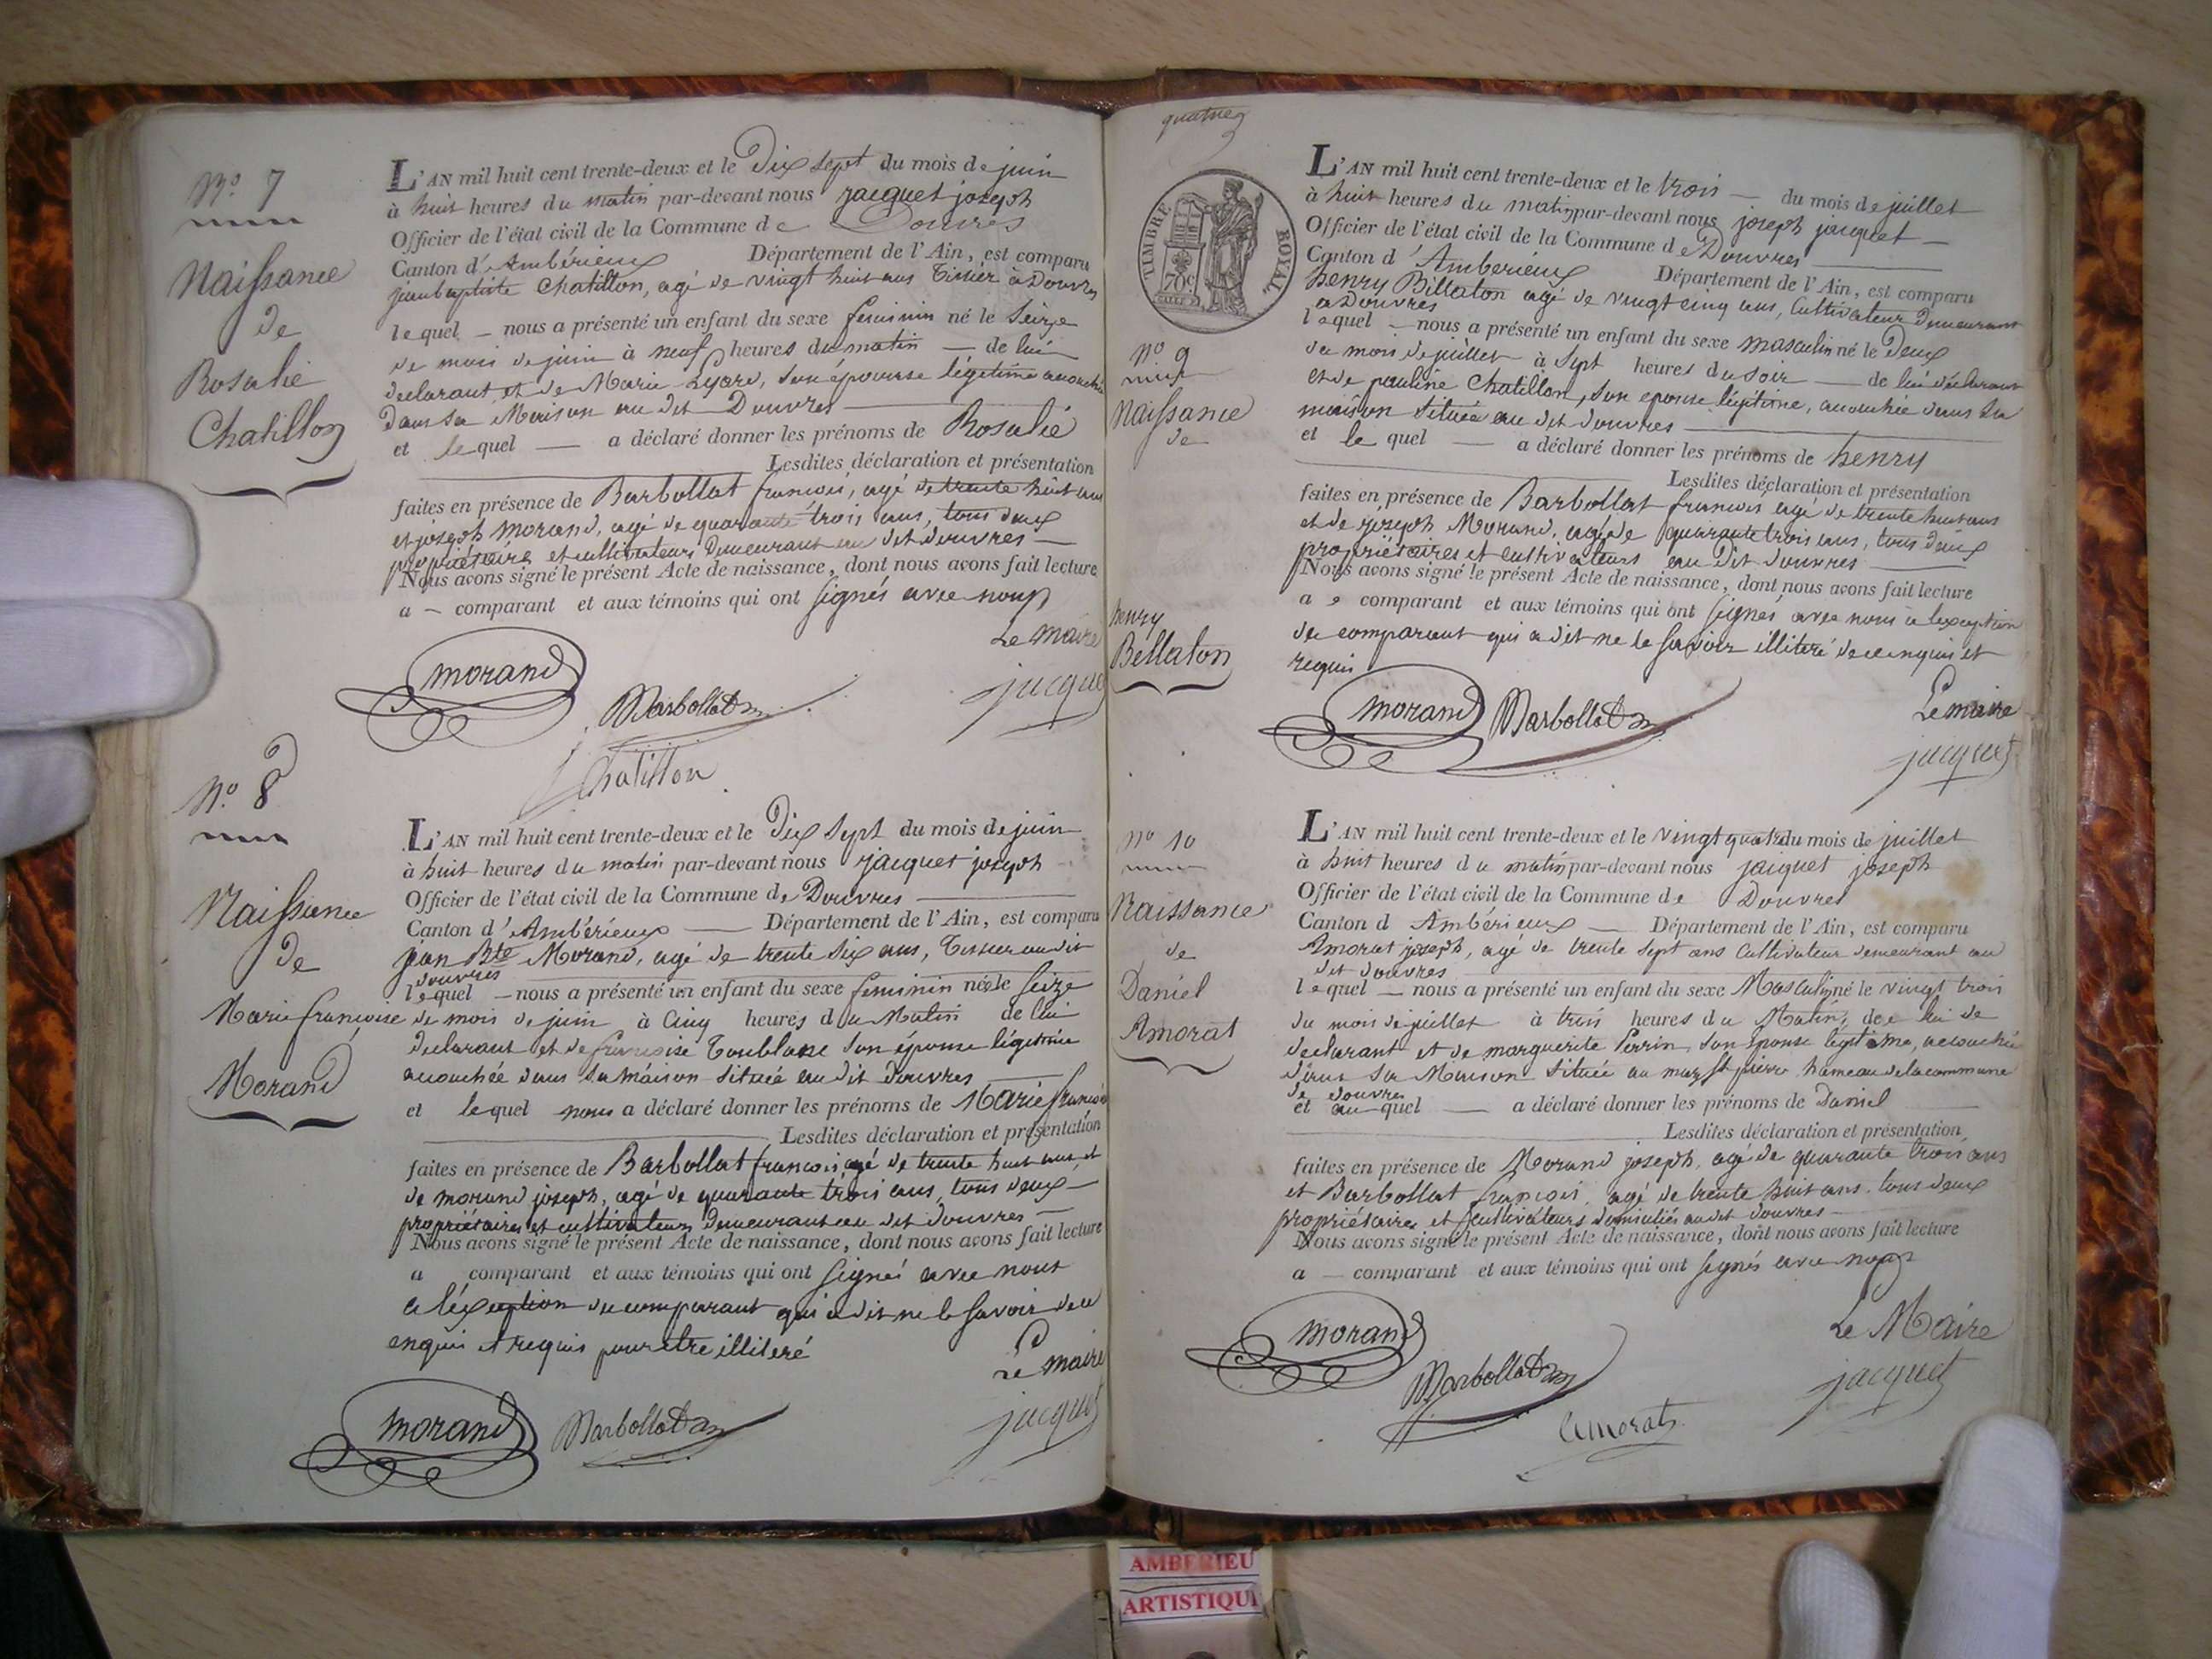 N.o 7
Naissance
de
Rosalie
Chatillon
L'AN mil huit cent trente-deux et le Dix sept du mois de juin
à huit heures du matin par-devant nous jacquet joseph
Officier de l'état civil de la Commune de Douvres
Canton d'Ambérieux Département de l'Ain, est comparu
jeanbaptiste Chatillon, agé de vingt huit ans Tissier à Douvres
lequel – nous a présenté un enfant du sexe feminin né le Seize
de mois de juin à neuf heures du matin — de lui
declarant et de Marie Lyard, son épouse légitime accouchée
dans sa Maison au dit Douvres
et lequel — a déclaré donner les prénoms de Rosalie
Lesdites déclaration et présentation
faites en présence de Barbollat francois, agé de trente huit ans
et joseph Morand, agé de quarante trois ans, tous deux
propriétaire et cultivateurs Demeurant au dit douvres —
Nous avons signé le présent Acte de naissance, dont nous avons fait lecture
a – comparant et aux témoins qui ont signés avec nous
Le maire
morand
Barbollat
jacquet
Chatillon
N.o 8
Naissance
de
Marie françoise
Morand
L'AN mil huit cent trente-deux et le Dix sept du mois de juin
à huit heures du matin par-devant nous jacquet joseph
Officier de l'état civil de la Commune de Douvres
Canton d'Ambérieux — Département de l'Ain, est comparu
jean Bte Morand, agé de trente six ans, Tissier au dit
douvres
lequel — nous a présenté un enfant du sexe feminin née le Seize
de mois de juin à Cinq heures du Matin de lui
declarant et de françoise son épouse légitime
accouchée dans sa maison située au dit Douvres
et lequel nous a déclaré donner les prénoms de Marie françoise
Lesdites déclaration et présentation
faites en présence de Barbollat francois agé de trente huit ans, et
de morand joseph, agé de quarante trois ans, tous deux —
propriétaires et cultivateurs demeurant au dit douvres —
Nous avons signé le présent Acte de naissance, dont nous avons fait lecture
a comparant et aux témoins qui ont signés avec nous
a léxception du comparant qui a dit ne le savoir de ce
enquis et requis pour etre illiteré
Le maire
morand
Barbollat
jacquet
quatre
TIMBRE ROYAL
70c
no 9
Naissance
de
henry
Bellaton
L'AN mil huit cent trente-deux et le trois — du mois de juillet
à huit heures du matin par-devant nous joseph jacquet —
Officier de l'état civil de la Commune de Douvres
Canton d'Amberieux Département de l'Ain, est comparu
henry Billaton agé de vingt cinq ans, Cultivateur demeurant
a Douvres
lequel – nous a présenté un enfant du sexe masculin né le Deux
du mois de juillet à Sept heures du soir — de lui déclarant
et de pauline Chatillon, son epouse légitime, accouchée dans sa
maison située au dit douvres
et lequel — a déclaré donner les prénoms de henry
Lesdites déclaration et présentation
faites en présence de Barbollat francois agé de trente huit ans
et de joseph Morand, agé de quarante trois ans, tous deux
propriétaires et cultivateurs au Dit douvres
Nous avons signé le présent Acte de naissance, dont nous avons fait lecture
a e comparant et aux témoins qui ont signés avec nous a lexception
du comparant qui a dit ne le savoir illiteré de ce enquis et
requis
Le maire
morand
Barbollat
jacquet
no 10
Naissance
de
Daniel
Amorat
L'AN mil huit cent trente-deux et le vingt quatre du mois de juillet
à huit heures du matin par-devant nous jacquet joseph
Officier de l'état civil de la Commune de Douvres
Canton d Ambérieux — Département de l'Ain, est comparu
Amorat joseph, agé de trente sept ans Cultivateur demeurant au
dit douvres
lequel — nous a présenté un enfant du sexe Masculin né le vingt trois
du mois de juillet à trois heures du Matin, de lui de
declarant et de marguerite Perrin, son épouse légitime, accouchée
dans sa Maison située au maz St pierre hameau de la commune
de douvres
et au quel — a déclaré donner les prénoms de Daniel
Lesdites déclaration et présentation
faites en présence de Morand joseph, agé de quarante trois ans
et Barbollat françois, agé de trente huit ans, tous deux
propriétaires et cultivateurs domiciliés au dit douvres —
Nous avons signé le présent Acte de naissance, dont nous avons fait lecture
a — comparant et aux témoins qui ont signés avec nous
Le Maire
morand
Barbollat
Amorat
jacquet
AMBERIEU
ARTISTIQU